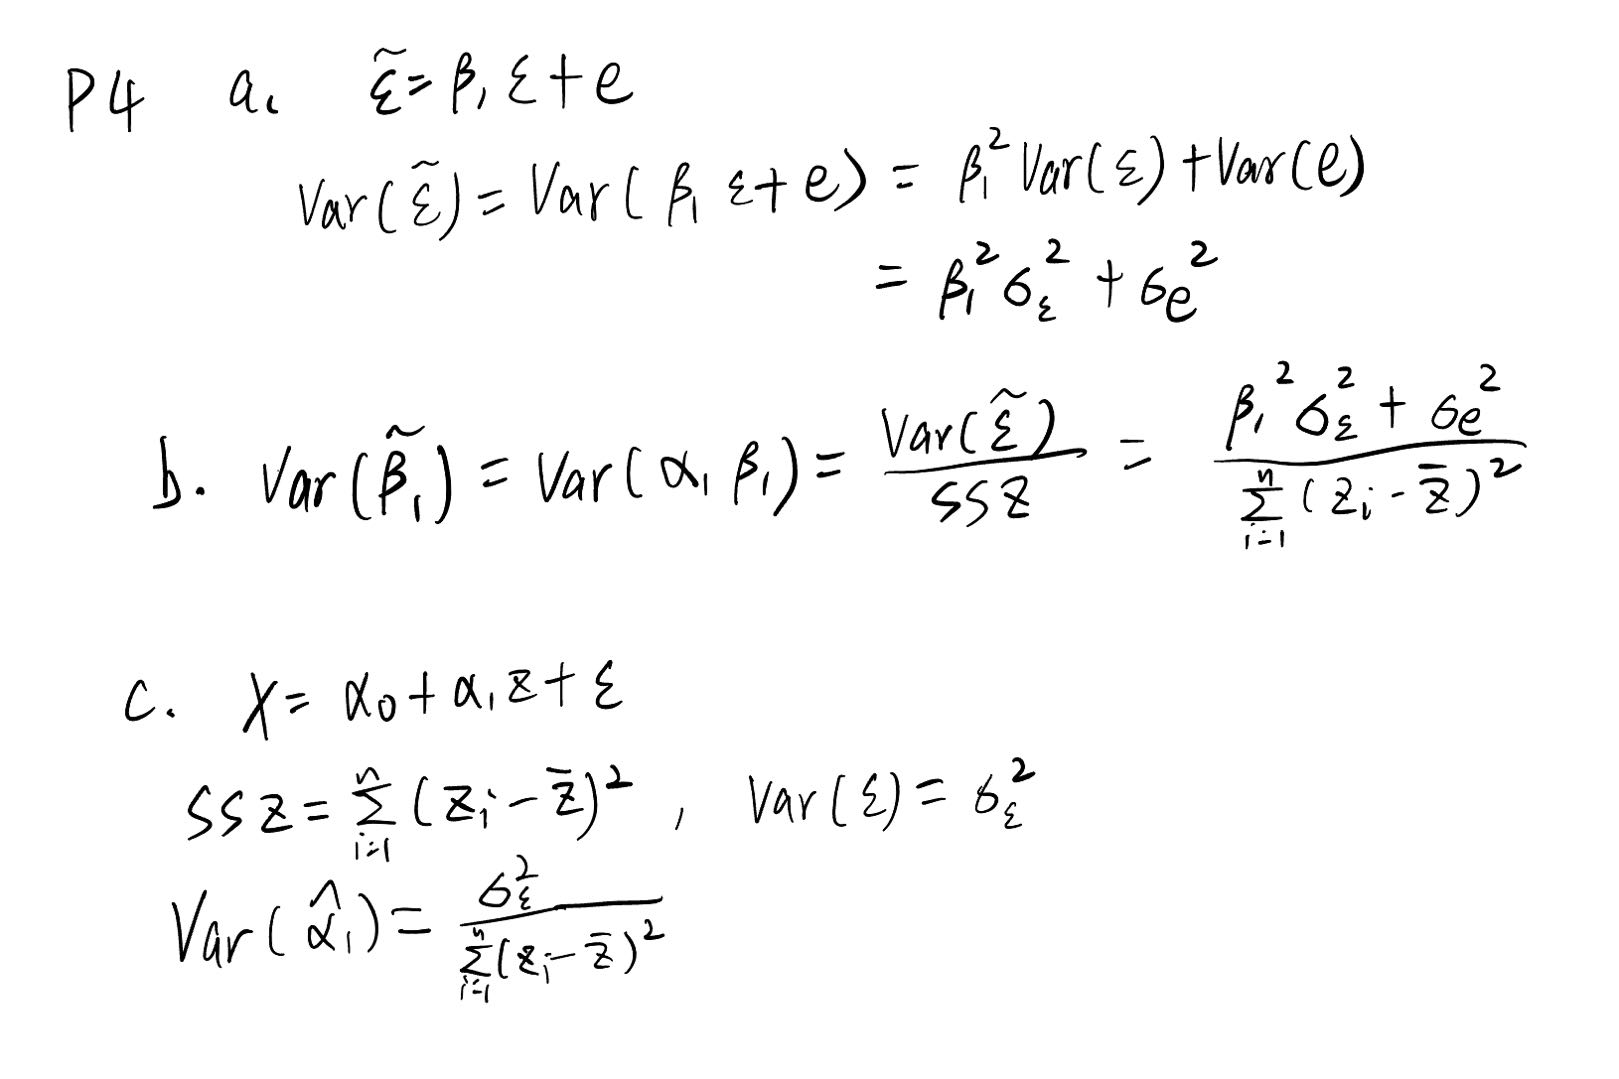 P4 a. ε̃ = β₁ ε + e
Var(ε̃) = Var(β₁ ε + e) = β₁² Var(ε) + Var(e)
= β₁² σ_ε² + σ_e²
b. Var(β̃₁) = Var(α₁ β₁) = Var(ε̃) / SSZ = (β₁² σ_ε² + σ_e²) / ∑_{i=1}^{n} (z_i - z̄)²
c. X = α₀ + α₁ z + ε
SSZ = ∑_{i=1}^{n} (z_i - z̄)² , Var(ε) = σ_ε²
Var(α̂₁) = σ_ε² / ∑_{i=1}^{n} (z_i - z̄)²